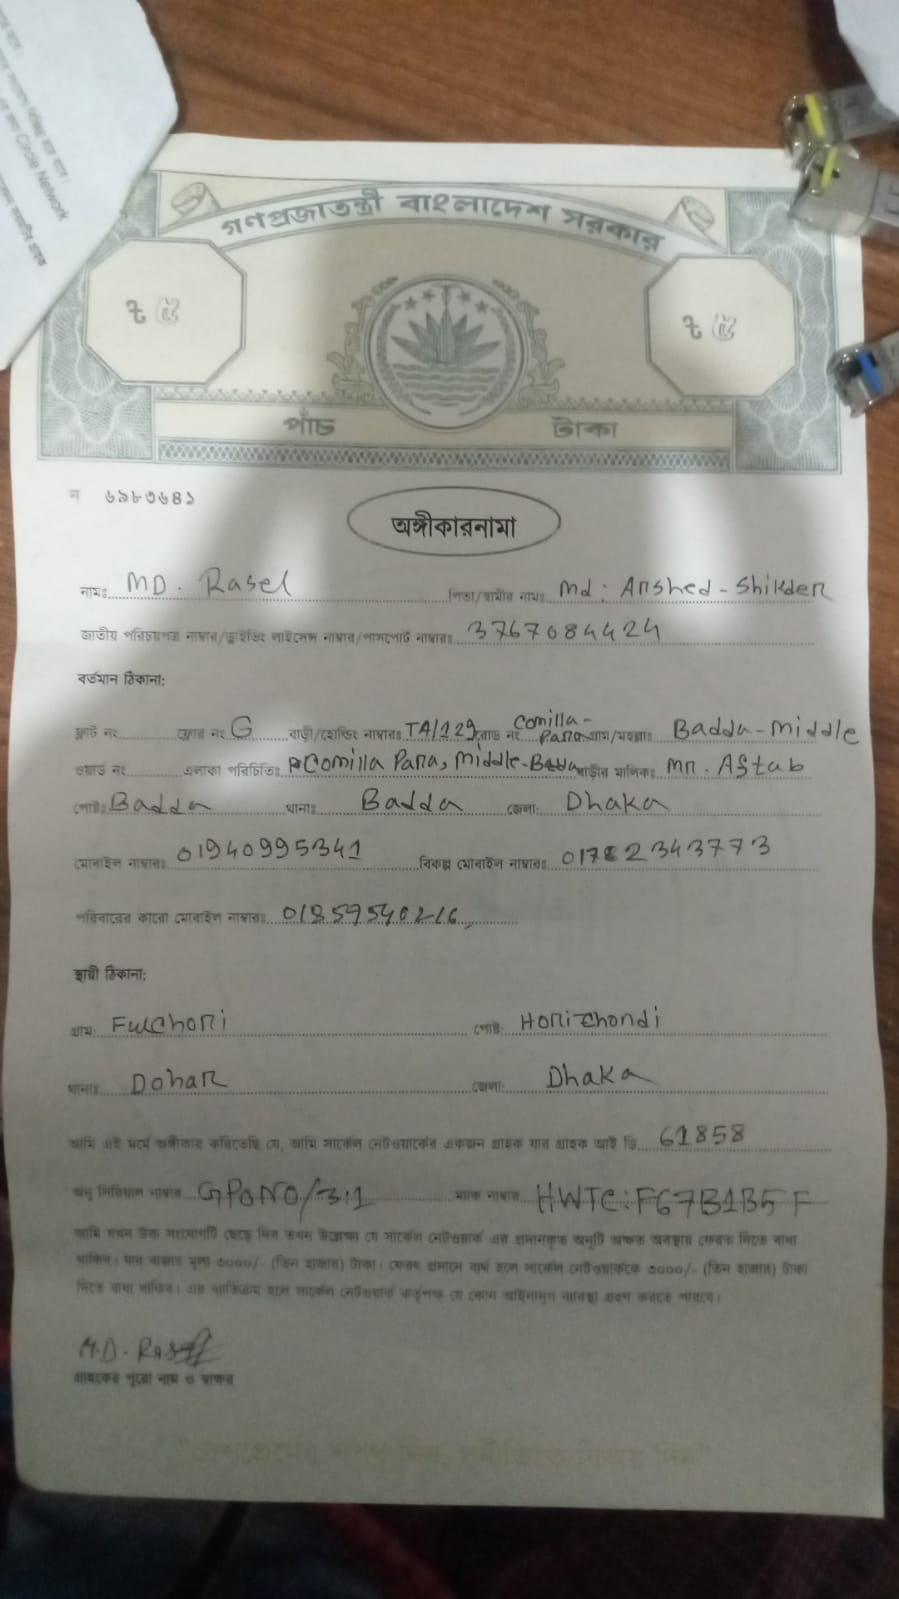 Circle Network
গণপ্রজাতন্ত্রী বাংলাদেশ সরকার
৳ ৫
৳ ৫
পাঁচ টাকা
ন ৬৯৮৩৬৪১
অঙ্গীকারনামা
নামঃ MD. Rasel পিতা/স্বামীর নামঃ Md: Arshed - Shikder
জাতীয় পরিচয়পত্র নাম্বার/ড্রাইভিং লাইসেন্স নাম্বার/পাসপোর্ট নাম্বারঃ 3767084424
বর্তমান ঠিকানা:
ফ্লাট নং ফ্লোর নং G বাড়ী/হোল্ডিং নাম্বারঃ TA/129 রোড নং Comilla-Para গ্রাম/মহল্লাঃ Badda-Middle
ওয়ার্ড নং এলাকা পরিচিতিঃ Comilla Para, Middle-Badda বাড়ীর মালিকঃ Mr. Aftab
পোষ্টঃ Badda থানাঃ Badda জেলা: Dhaka
মোবাইল নাম্বারঃ 01940995341 বিকল্প মোবাইল নাম্বারঃ 01782343773
পরিবারের কারো মোবাইল নাম্বারঃ 01859540216
স্থায়ী ঠিকানা:
গ্রাম: Fulchori পোষ্ট: Horichondi
থানাঃ Dohar জেলা: Dhaka
আমি এই মর্মে অঙ্গীকার করিতেছি যে, আমি সার্কেল নেটওয়ার্কের একজন গ্রাহক যার গ্রাহক আই ডি 61858
অনু সিরিয়াল নাম্বার GPONO/311 ম্যাক নাম্বার HWTC:F67B1B5F
আমি যখন উক্ত সংযোগটি ছেড়ে দিব তখন উল্লেখ্য যে সার্কেল নেটওয়ার্ক এর প্রদানকৃত অনুটি অক্ষত অবস্থায় ফেরত দিতে বাধ্য
থাকিব। যার বাজার মূল্য ৩০০০/- (তিন হাজার) টাকা। ফেরৎ প্রদানে ব্যর্থ হলে সার্কেল নেটওয়ার্ককে ৩০০০/- (তিন হাজার) টাকা
দিতে বাধ্য থাকিব। এর ব্যতিক্রম হলে সার্কেল নেটওয়ার্ক কর্তৃপক্ষ যে কোন আইনানুগ ব্যবস্থা গ্রহণ করতে পারবে।
M.D. Rasel
গ্রাহকের পুরো নাম ও স্বাক্ষর